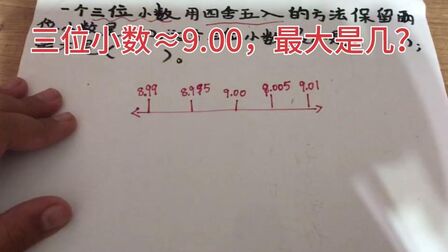 一个三位小数用四舍五入的方法保留两
三位小数≈9.00，最大是几？
8.99 8.995 9.00 9.005 9.01